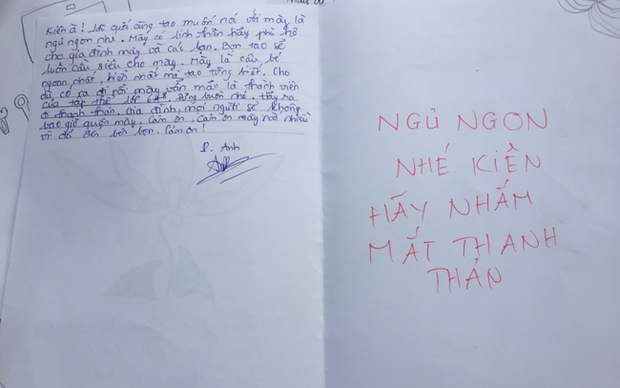 Kiên à! lời cuối cùng tao muốn nói với mày là
ngủ ngon nhé. Mày có linh thiêng hãy phù hộ
cho gia đình mày và các bạn. Bọn tao sẽ
luôn cầu siêu cho mày. Mày là cậu bé
ngoan nhất, hiền nhất mà tao từng biết. Cho
dù có ra đi rồi mày vẫn mãi là thành viên
của tập thể lớp 6A8. Đừng buồn nhé. Hãy ra
đi thanh thản. Gia đình, mọi người sẽ không
bao giờ quên mày. Cảm ơn, cảm ơn mày rất nhiều
vì đã đến bên bọn. Cảm ơn!
P. Anh
NGỦ NGON
NHÉ KIÊN
HÃY NHẮM
MẮT THANH
THẢN